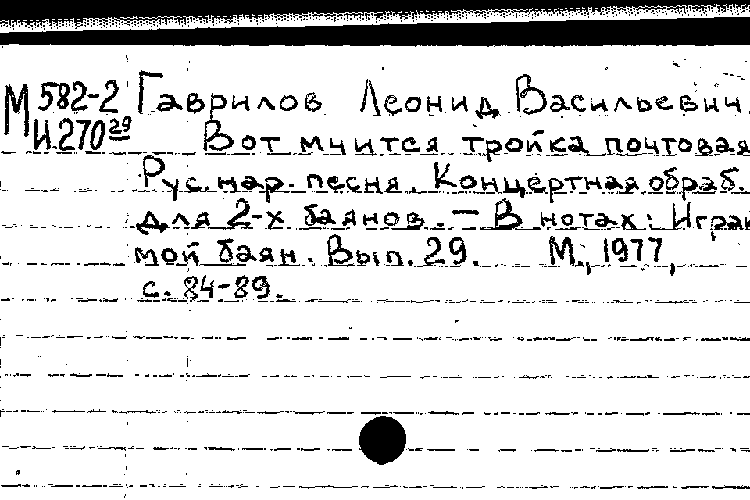 М 582-2 Гаврилов Леонид Васильевич
И.270 29 Вот мчится тройка почтовая
Рус. нар. песня. Концертная обраб.
для 2-х баянов. — В нотах: Играй
мой баян. Вып. 29. М., 1977,
с. 84-89.